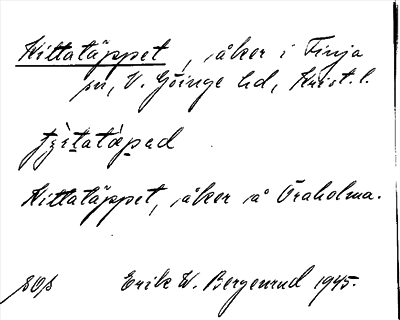 Kittatäppet, åker i Finja
sn, V. Göinge hd, Krist. l.
Kittatäppet, åker å Öraholma.
Erik W. Bergenrud 1945.